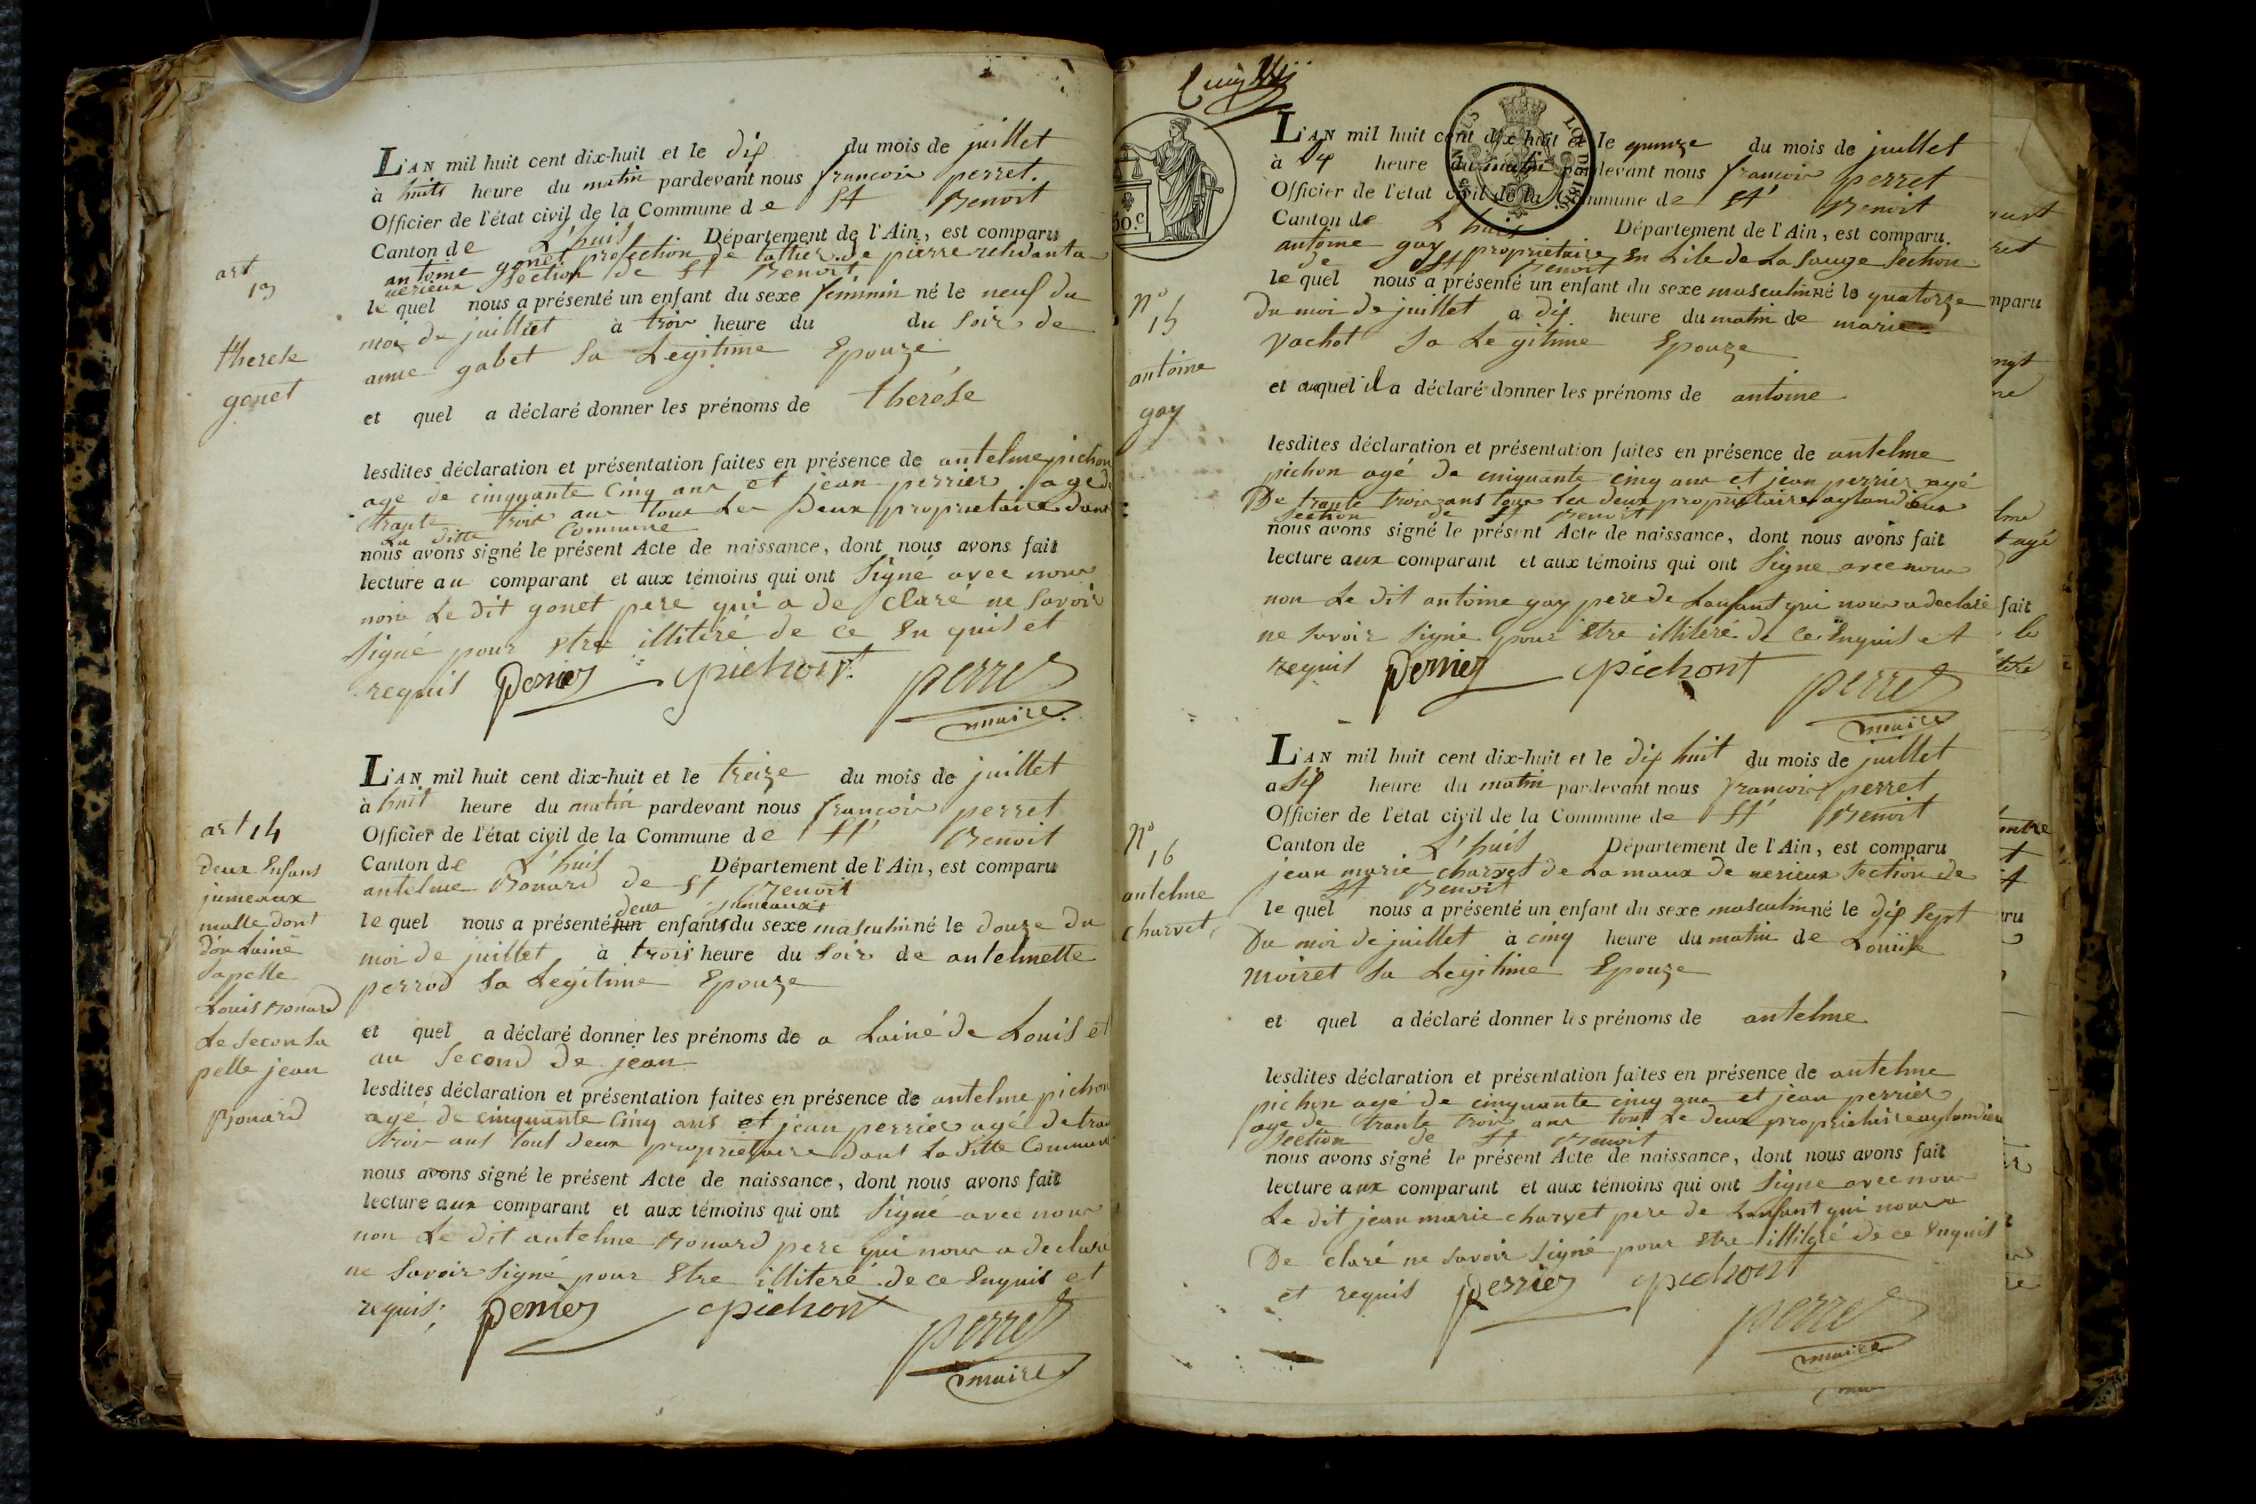 L'AN mil huit cent dix-huit et le dix du mois de juillet
à huits heure du matin pardevant nous francois perret.
Officier de l'état civil de la Commune de St Benoit
Canton de L'huis Département de l'Ain, est comparu
antoine gonet profection de de pierre
nerieux section de St Benoit
le quel nous a présenté un enfant du sexe féminin né le neuf du
moi de juilliet à troix heure du du soir de
anne gabet sa Legitime Epouze
et quel a déclaré donner les prénoms de therése
lesdites déclaration et présentation faites en présence de antelme pichon
age de cinquante cinq ans et jean perrier agé de
trante trois ans tous Les Deux proprietaire dans
La ditte Commune
nous avons signé le présent Acte de naissance, dont nous avons fait
lecture au comparant et aux témoins qui ont Signé avec nous
non Le dit gonet pere qui a de claré ne savoir
signé pour Etre illitéré de ce En quis et
requis perrier pichont perret
maire
art 13
therese
gonet
L'AN mil huit cent dix-huit et le treize du mois de juillet
à huit heure du matin pardevant nous francois perret
Officier de l'état civil de la Commune de St Benoit
Canton de L'huis Département de l'Ain, est comparu
antelme Bonard de St Benoit
deux jumeaux
le quel nous a présenté un enfants du sexe masculin né le douze du
moi de juillet à trois heure du soir de antelmette
perrod sa Legitime Epouze
et quel a déclaré donner les prénoms de a Lainé de Louis et
au Second de jean
lesdites déclaration et présentation faites en présence de antelme pichon
agé de cinquante Cinq ans et jean perrier agé de tran
trois ans tous deux proprietaire dans La ditte Commune
nous avons signé le présent Acte de naissance, dont nous avons fait
lecture aux comparant et aux témoins qui ont Signé avec nous
non Le dit antelme Bonard pere qui nous a declaré
ne savoir signé pour Etre illiteré de ce Enquis et
requis; perrier pichont perret
maire
art 14
deux Enfans
jumeaux
malle dont
don Lainé
sapelle
Louis Bonard
Le secon sa
pelle jean
Bonard
L'AN mil huit cent dix-huit et le quinze du mois de juillet
à dix heure du matin pardevant nous francois perret
Officier de l'état civil de la Commune de St Benoit
Canton de L'huis Département de l'Ain, est comparu.
antoine gay proprietaire En Lile de La Sauge Section
de St Benoit
le quel nous a présenté un enfant du sexe masculin né le quatorze
du moi de juillet a dix heure du matin de marie
Vachot sa Legitime Epouze
et auquel il a déclaré donner les prénoms de antoine
lesdites déclaration et présentation faites en présence de antelme
pichon agé de cinquante cinq ans et jean perrier agé
De trante trois ans tous les deux proprietaire aglandieux
section de St Benoit
nous avons signé le présent Acte de naissance, dont nous avons fait
lecture aux comparant et aux témoins qui ont Signe avec nous
non Le dit antoine gay pere de Lanfant qui nous a declaré
ne savoir signé pour Etre illitéré de ce Enquis et
requis perrier pichont perret
maire
N° 15
antoine
gay
30.c
LOI DE 1816
L'AN mil huit cent dix-huit et le dix huit du mois de juillet
a six heure du matin pardevant nous francois perret
Officier de l'état civil de la Commune de St Benoit
Canton de L'huis Département de l'Ain, est comparu
jean marie charvet de La maux de nerieux section de
St Benoit
le quel nous a présenté un enfant du sexe masculin né le dix sept
Du moi de juillet à cinq heure du matin de Louise
moiret sa Legitime Epouze
et quel a déclaré donner les prénoms de antelme
lesdites déclaration et présentation faites en présence de antelme
pichon agé de cinquante cinq ans et jean perrier
age de trante trois ans tous Le deux proprietaire aglandieu
section de St Benoit
nous avons signé le présent Acte de naissance, dont nous avons fait
lecture aux comparant et aux témoins qui ont Signe avec nous
Le dit jean marie charvet pere de Lanfant qui nous a
De claré ne savoir signé pour Etre illitéré de ce Enquis
et requis perrier pichont perret
maire
N° 16
antelme
charvet